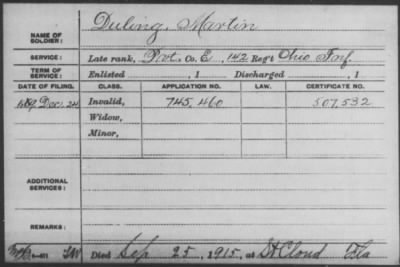 Duling, Martin
NAME OF SOLDIER:
SERVICE: Late rank, Pvt. Co. E, 142 Reg't Ohio Inf.
TERM OF SERVICE: Enlisted , 1 Discharged , 1
DATE OF FILING. CLASS. APPLICATION NO. LAW. CERTIFICATE NO.
1889, Dec. 24 Invalid, 745,460 507,532
Widow,
Minor,
ADDITIONAL SERVICES:
REMARKS:
Died Sep 25, 1915, at St Cloud Fla